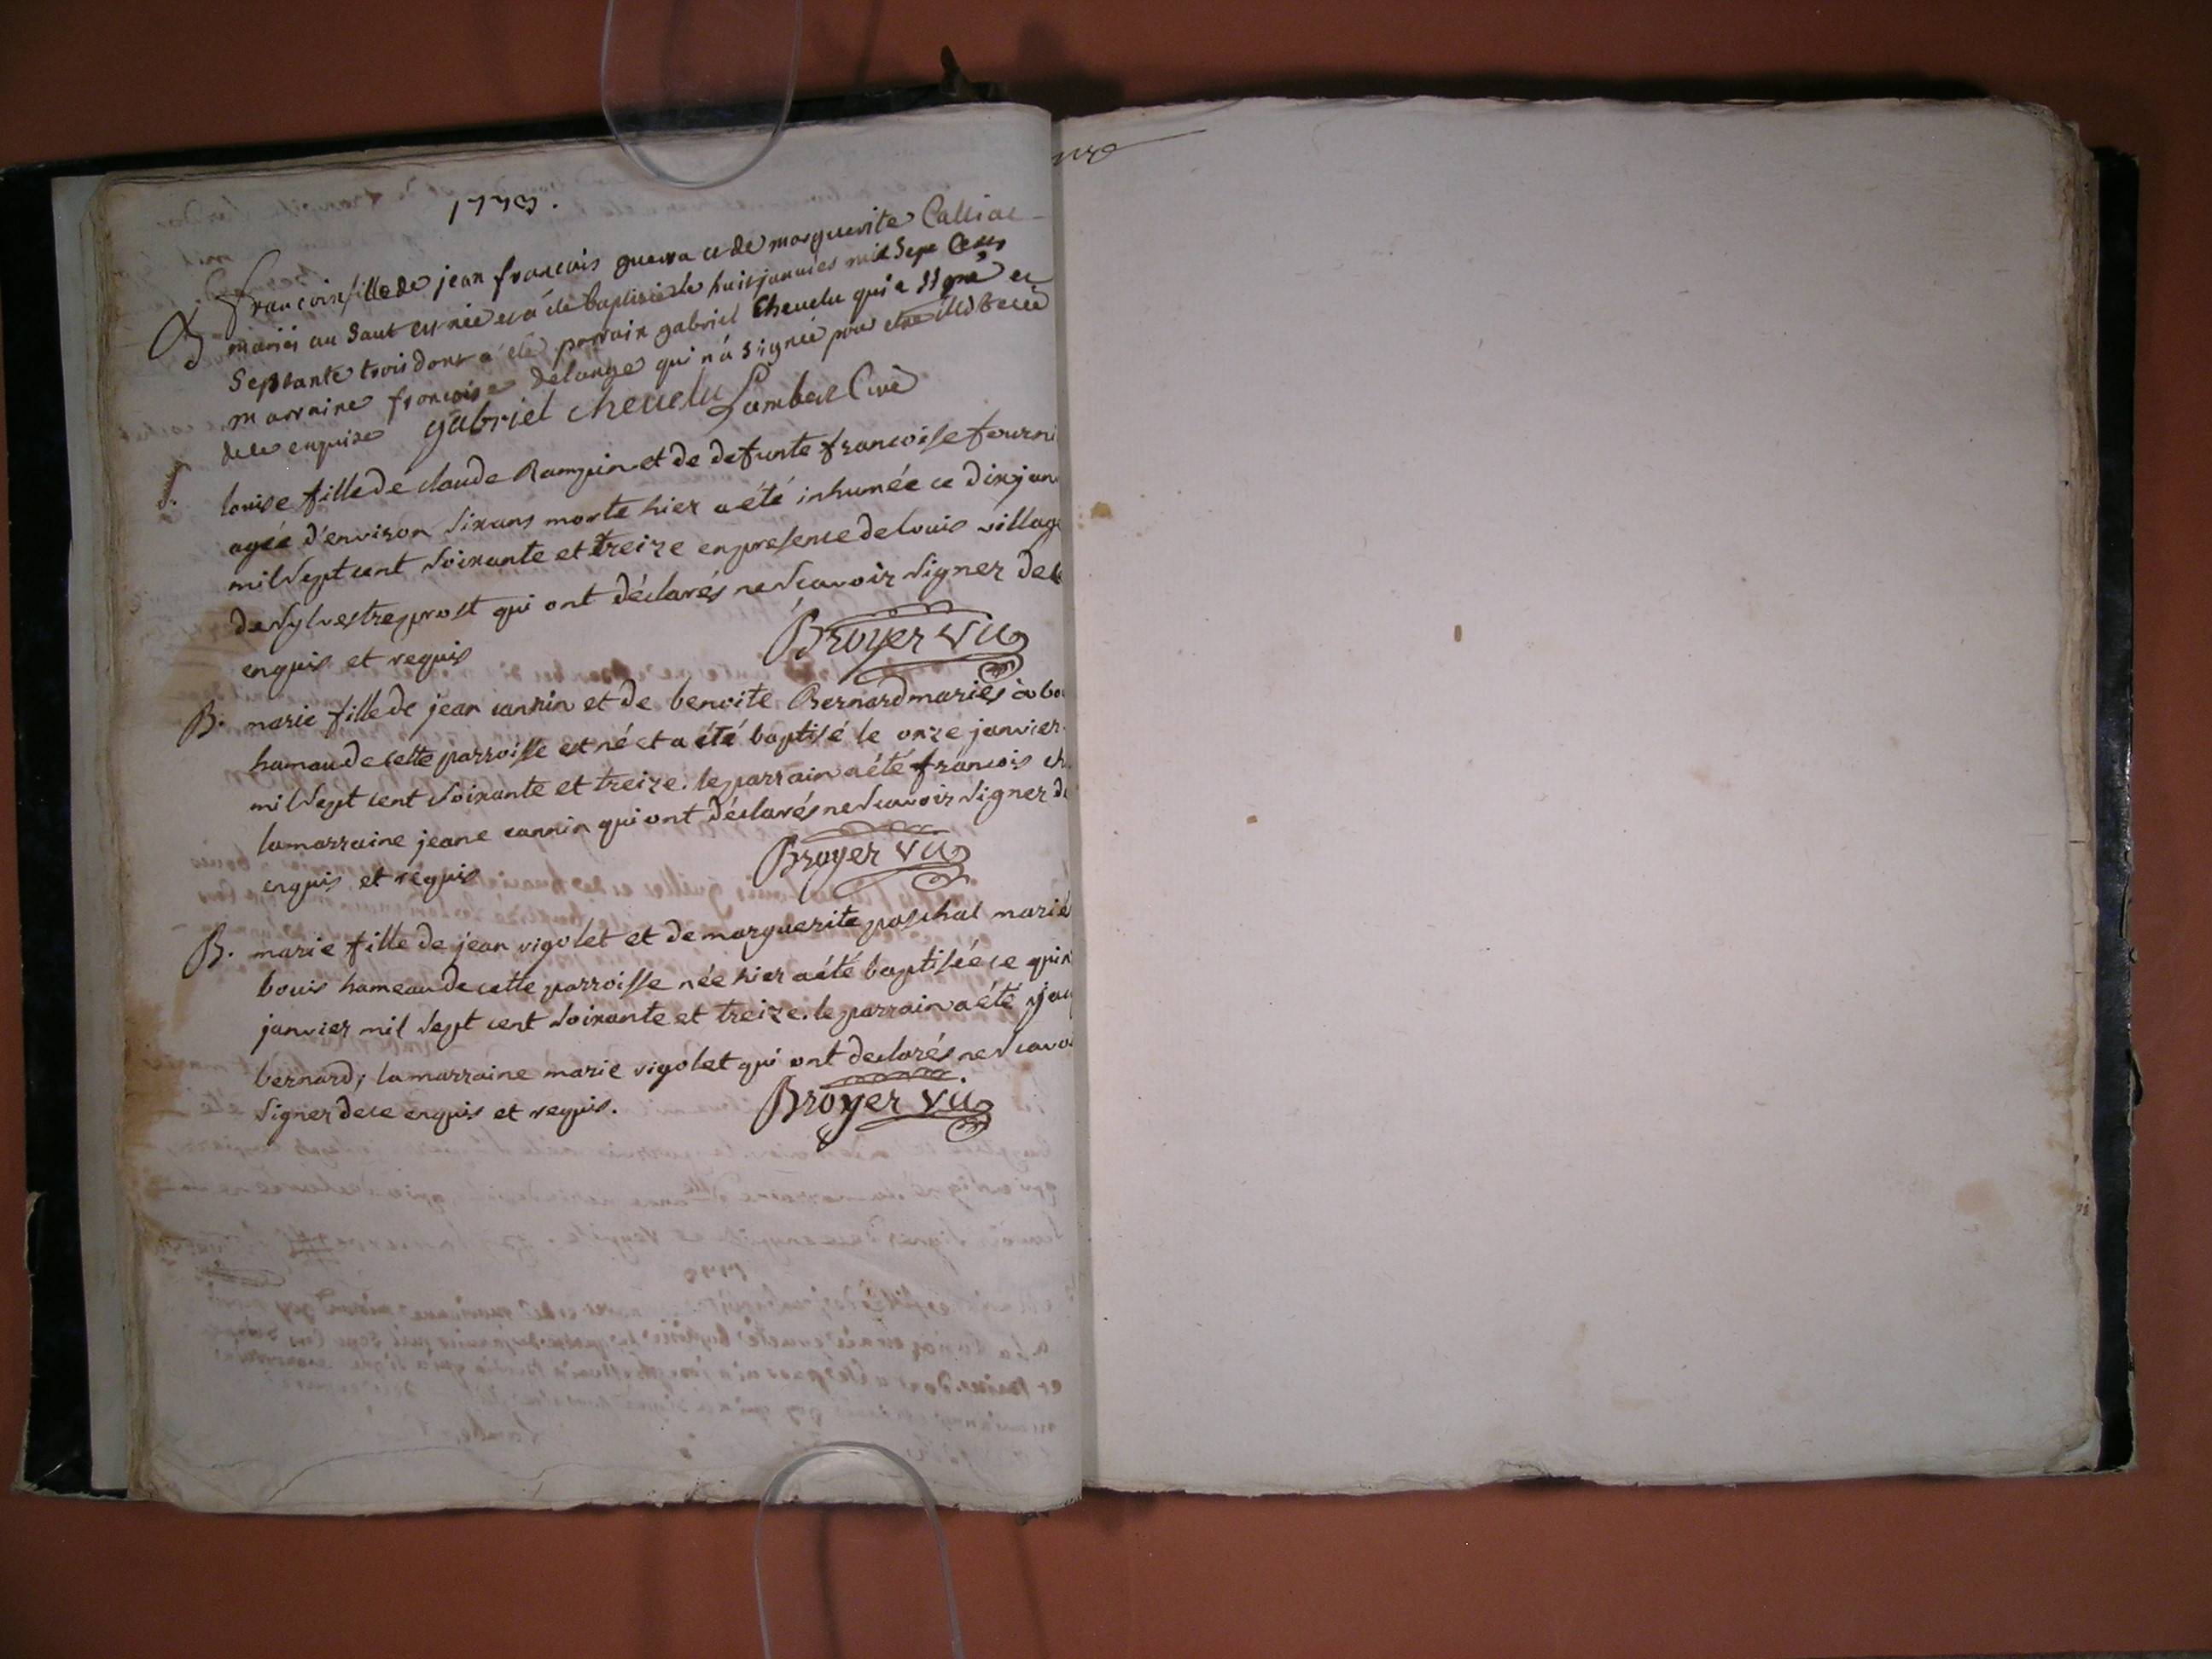 1773.
B françoise fille de jean françois guerra et de marguerite Calliat
mariés au Saut est née et a été baptisée le huit janvier mil Sept Cents
Septante trois dont a été parrain gabriel Chevelu qui a signé et
marraine françoise delange qui n'a signée pour etre illiterée
de ce enquise gabriel chevelu Lambert Curé
S. louise fille de claude Rampin et de defunte francoise fourni
agée d'environ Six ans morte hier a été inhumée ce dix jan
mil Sept cent Soixante et treize en presence de louis village
de Sylvestre prost qui ont déclarés ne Scavoir Signer de ce
enquis et requis Broyer vic
B. marie fille de jean cannin et de benoite Bernard mariés à bo
hamau de cette parroisse est né et a été baptisé le onze janvier
mil Sept cent Soixante et treize. le parrain a été francois ch
la marraine jeane cannin qui ont déclarés ne Scavoir Signer de
enquis et requis Broyer vic
B. marie fille de jean vigolet et de marguerite paschal marié
bouis hameau de cette parroisse née hier a été baptisée ce quin
janvier mil Sept cent Soixante et treize. le parrain a été
bernard; la marraine marie vigolet qui ont declarés ne Scavoi
Signer de ce enquis et requis. Broyer vic